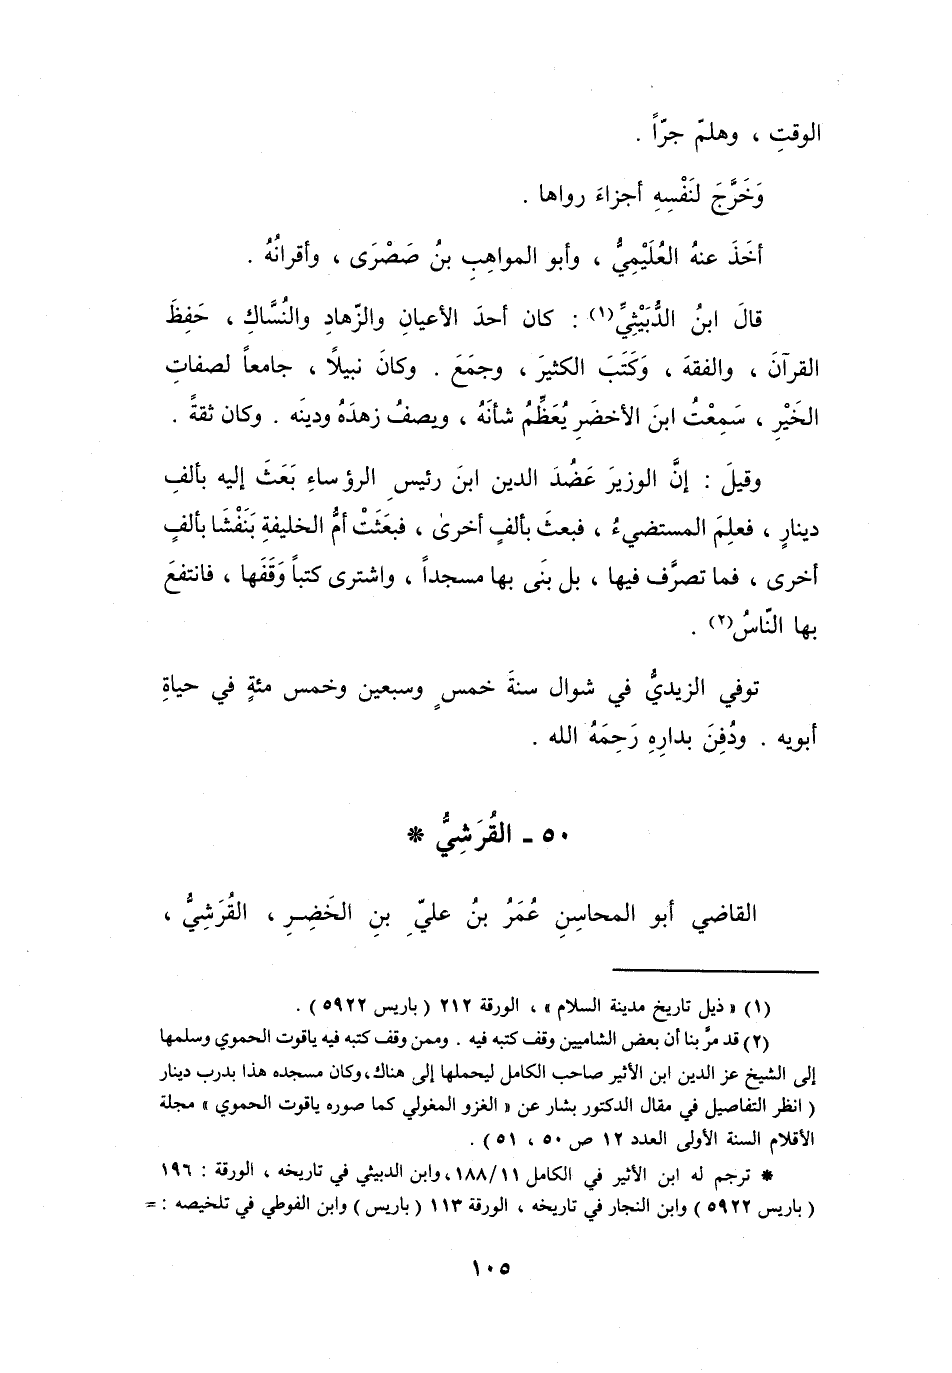 الوقتِ ، وهلمّ جرّاً .
وَخَرَّجَ لنَفْسِهِ أجزاءَ رواها .
أخَذَ عنهُ العُلَيْمِيُّ ، وأبو المواهِبِ بنُ صَصْرَى ، وأقرانُهُ .
قالَ ابنُ الدُّبَيْثِيِّ(١) : كان أحدَ الأعيانِ والزّهادِ والنُسَّاكِ ، حَفِظَ
القرآنَ ، والفقهَ ، وَكَتَبَ الكثيرَ ، وجمَعَ . وكانَ نبيلًا ، جامعاً لصفاتِ
الخَيْرِ ، سَمِعْتُ ابنَ الأخضَرِ يُعَظِّمُ شأنَهُ ، ويصفُ زهدَهُ ودينَه . وكان ثقةً .
وقيلَ : إنَّ الوزيرَ عَضُدَ الدين ابنَ رئيسِ الرؤساءِ بَعَثَ إليه بألفِ
دينارٍ ، فعلِمَ المستضيءُ ، فبعثَ بألفٍ أخرىٰ ، فبعَثَتْ أمُّ الخليفةِ بَنَفْشَا بألفٍ
أخرى ، فما تصرَّف فيها ، بل بنَى بها مسجداً ، واشترى كتباً وَقَفَها ، فانتفعَ
بها النّاسُ(٢) .
توفي الزيديُّ في شوال سنةَ خمسٍ وسبعين وخمس مئةٍ في حياةِ
أبويه . ودُفِنَ بدارِهِ رَحِمَهُ الله .
٥٠ - القُرَشِيُّ *
القاضي أبو المحاسِنِ عُمَرُ بنُ عليّ بنِ الخَضِرِ ، القُرَشِيُّ ،
(١) « ذيل تاريخ مدينة السلام » ، الورقة ٢١٢ ( باريس ٥٩٢٢ ) .
(٢) قد مرَّ بنا أن بعض الشاميين وقف كتبه فيه . وممن وقف كتبه فيه ياقوت الحموي وسلمها
إلى الشيخ عز الدين ابن الأثير صاحب الكامل ليحملها إلى هناك، وكان مسجده هذا بدرب دينار
( انظر التفاصيل في مقال الدكتور بشار عن « الغزو المغولي كما صوره ياقوت الحموي » مجلة
الأقلام السنة الأولى العدد ١٢ ص ٥٠ ، ٥١ ) .
* ترجم له ابن الأثير في الكامل ١٨٨/١١، وابن الدبيثي في تاريخه ، الورقة : ١٩٦
( باريس ٥٩٢٢ ) وابن النجار في تاريخه ، الورقة ١١٣ ( باريس ) وابن الفوطي في تلخيصه : =
١٠٥